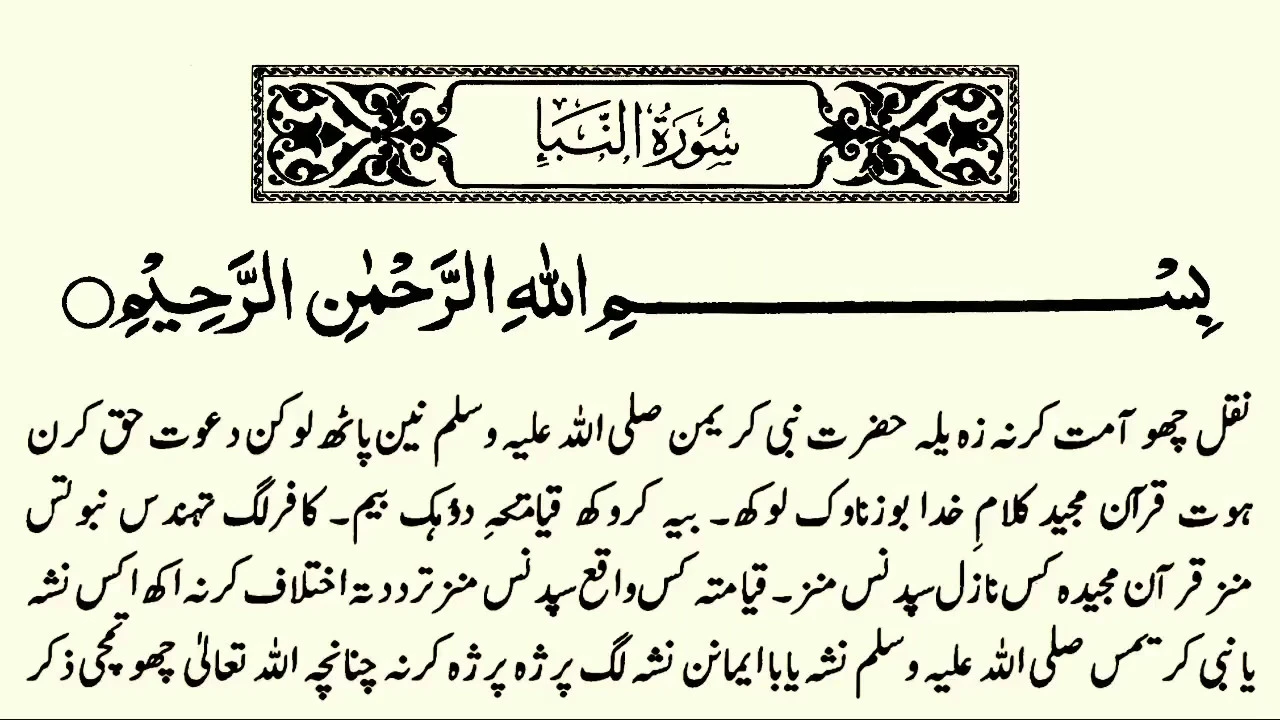 سُورَةُ النَّبَإِ
بِسْمِ اللهِ الرَّحْمٰنِ الرَّحِيْمِ
نقل چھو آمت کرنہ زہ یلہ حضرت نبی کریمن صلی اللہ علیہ وسلم نین پاٹھ لوکن دعوت حق کرن
ہوت قرآن مجید کلامِ خدا بوزناوک لوکھ۔ بیہ کروکھ قیامتچہِ دؤہک بیم۔ کافر لگ تہندس نبوتس
منز قرآن مجیدہ کس نازل سپدنس منز۔ قیامتہ کس واقع سپدنس منز تردد تہ اختلاف کرنہ اکھ اکس نشہ
یا نبی کریمس صلی اللہ علیہ وسلم نشہ یا باایمانن نشہ لگ پرژہ پرژہ کرنہ چنانچہ اللہ تعالیٰ چھو تمچی ذکر